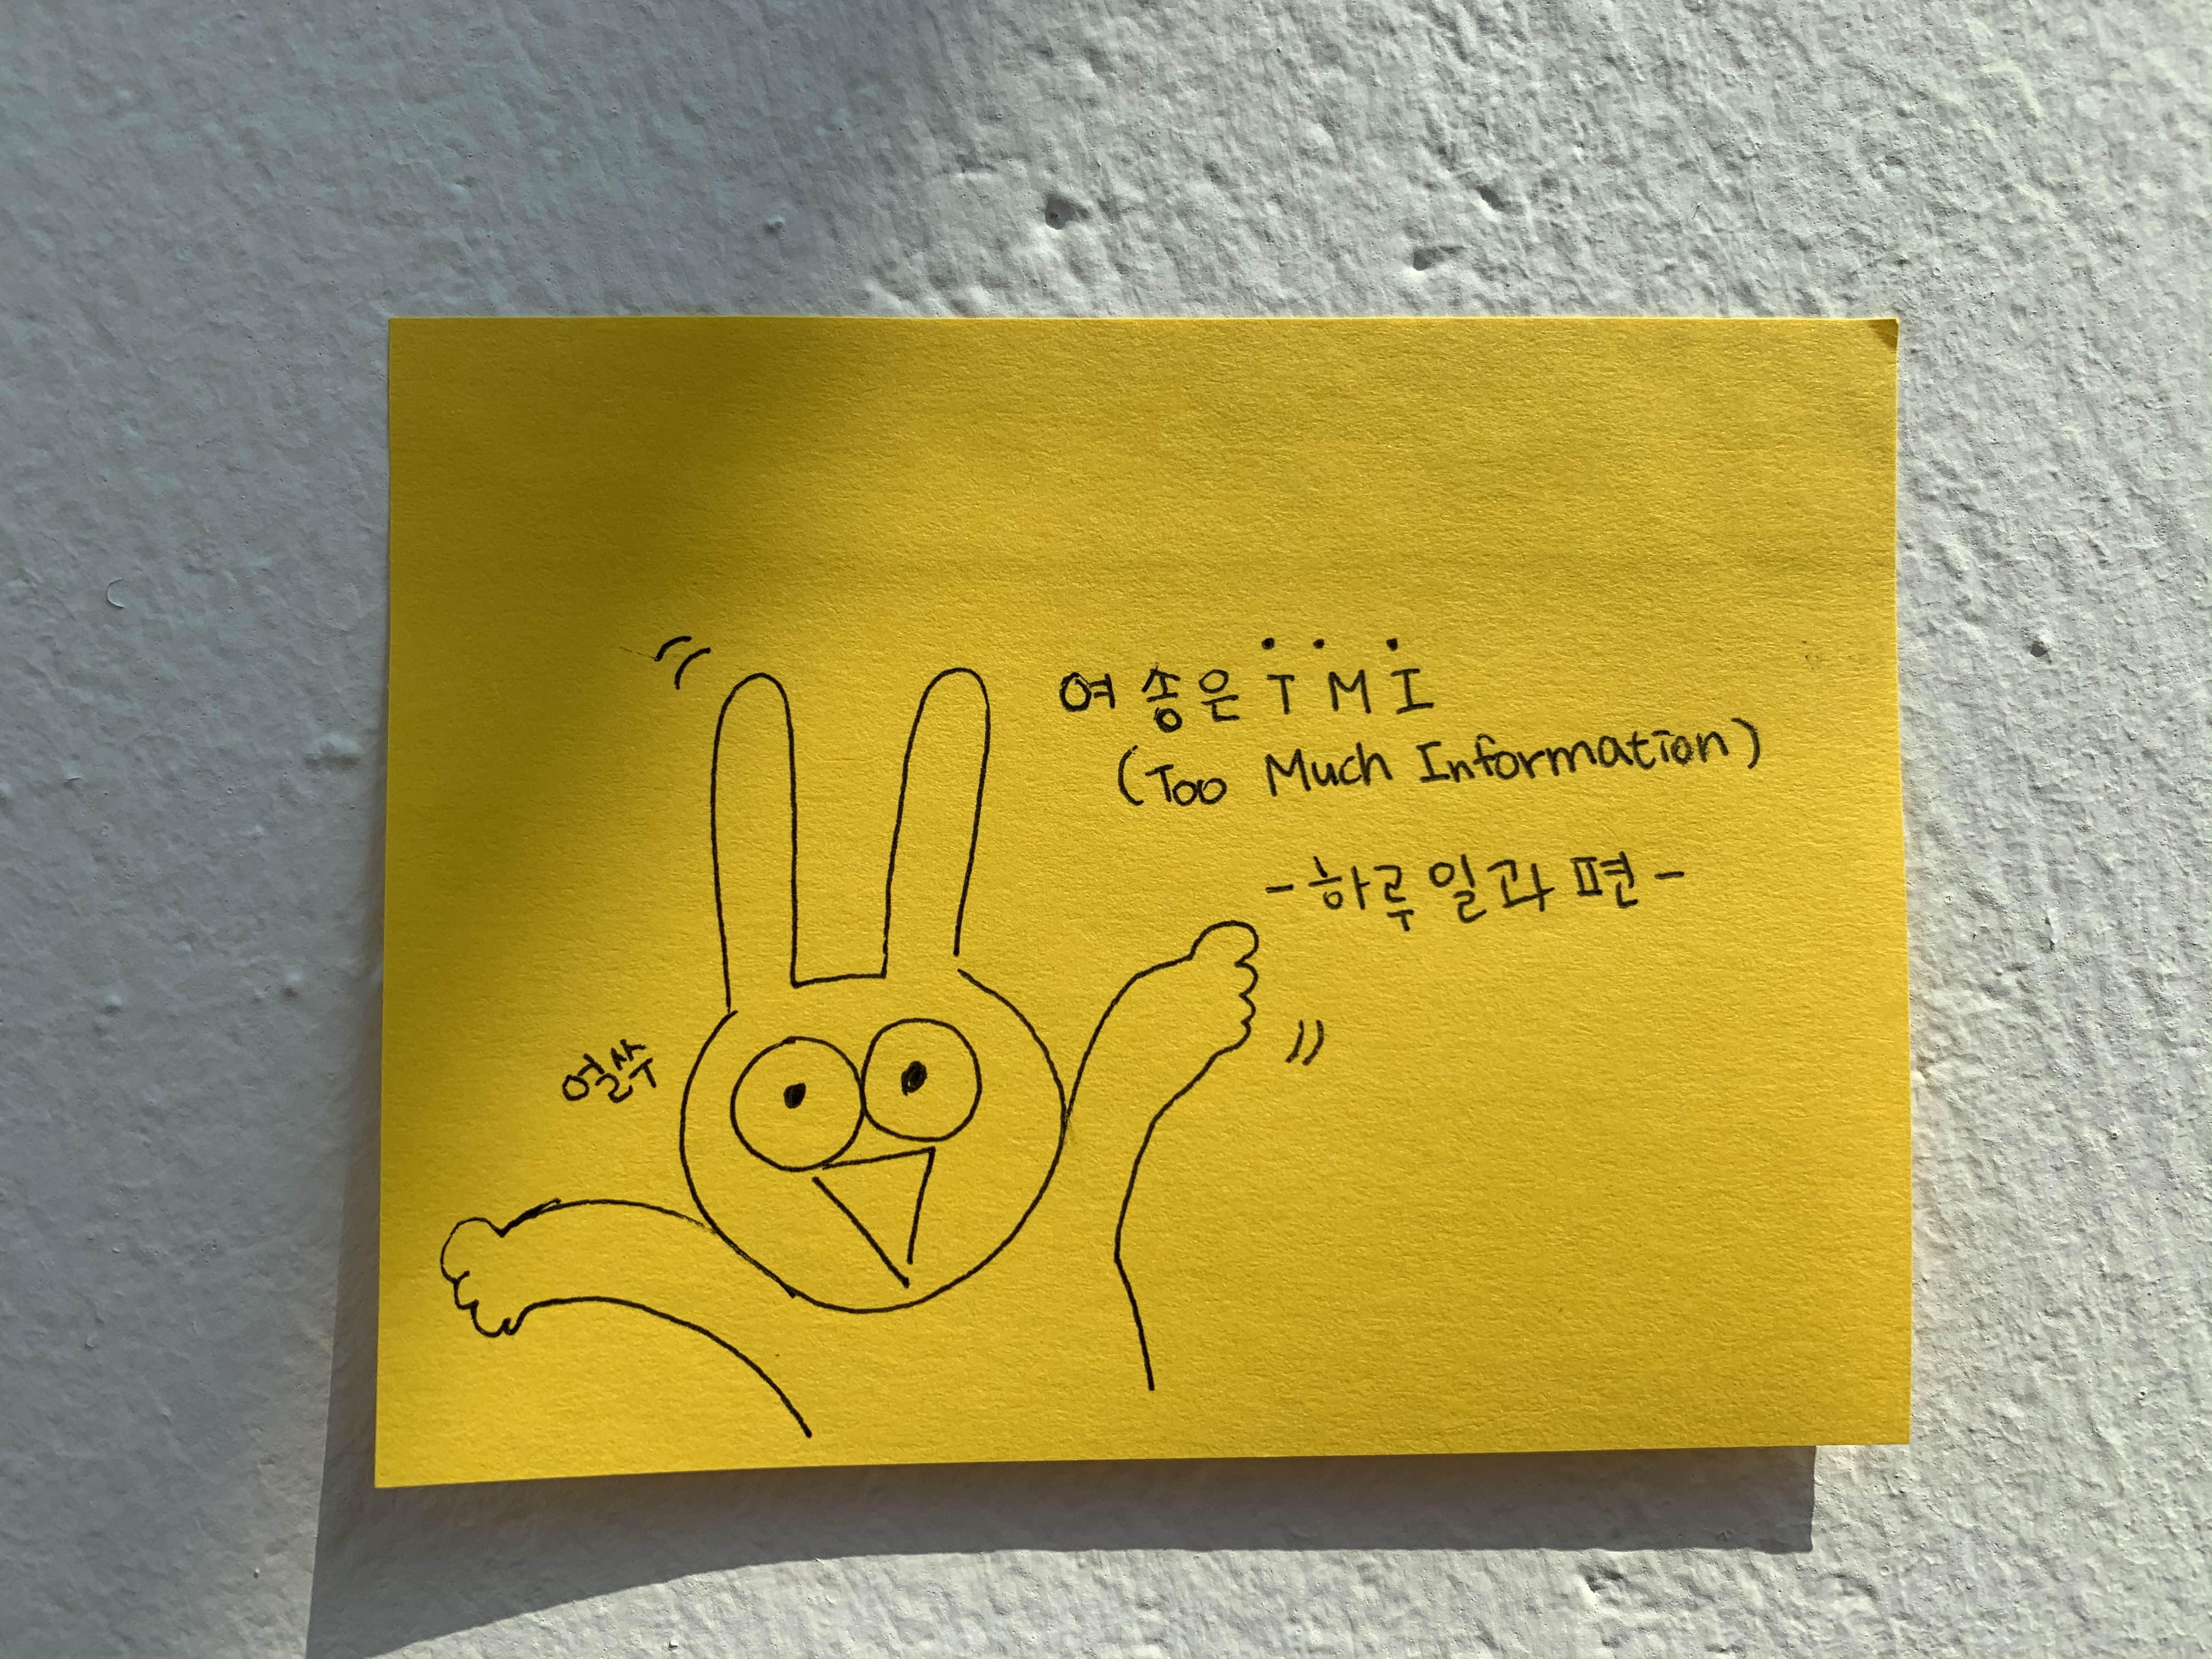 여송은 TMI
(Too Much Information)
-하루 일과 편-
열쑤